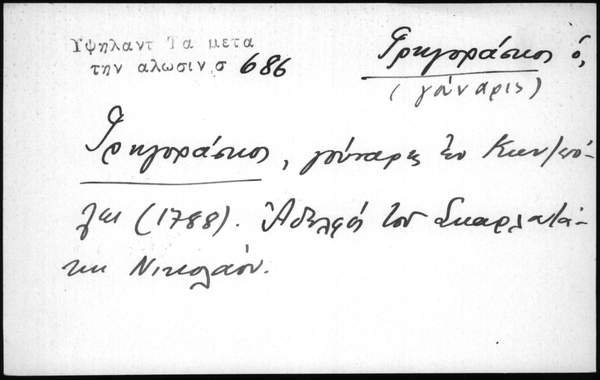 Υψηλαντ Τα μετα
την αλωσιν σ 686
Γρηγοράσκος ὁ,
(γούναρις)
Γρηγοράσκος, γούναρις ἐν Κων/πό-
λει (1788). Ἀδελφός τοῦ Σκαρλατά-
κη Νικολάου.